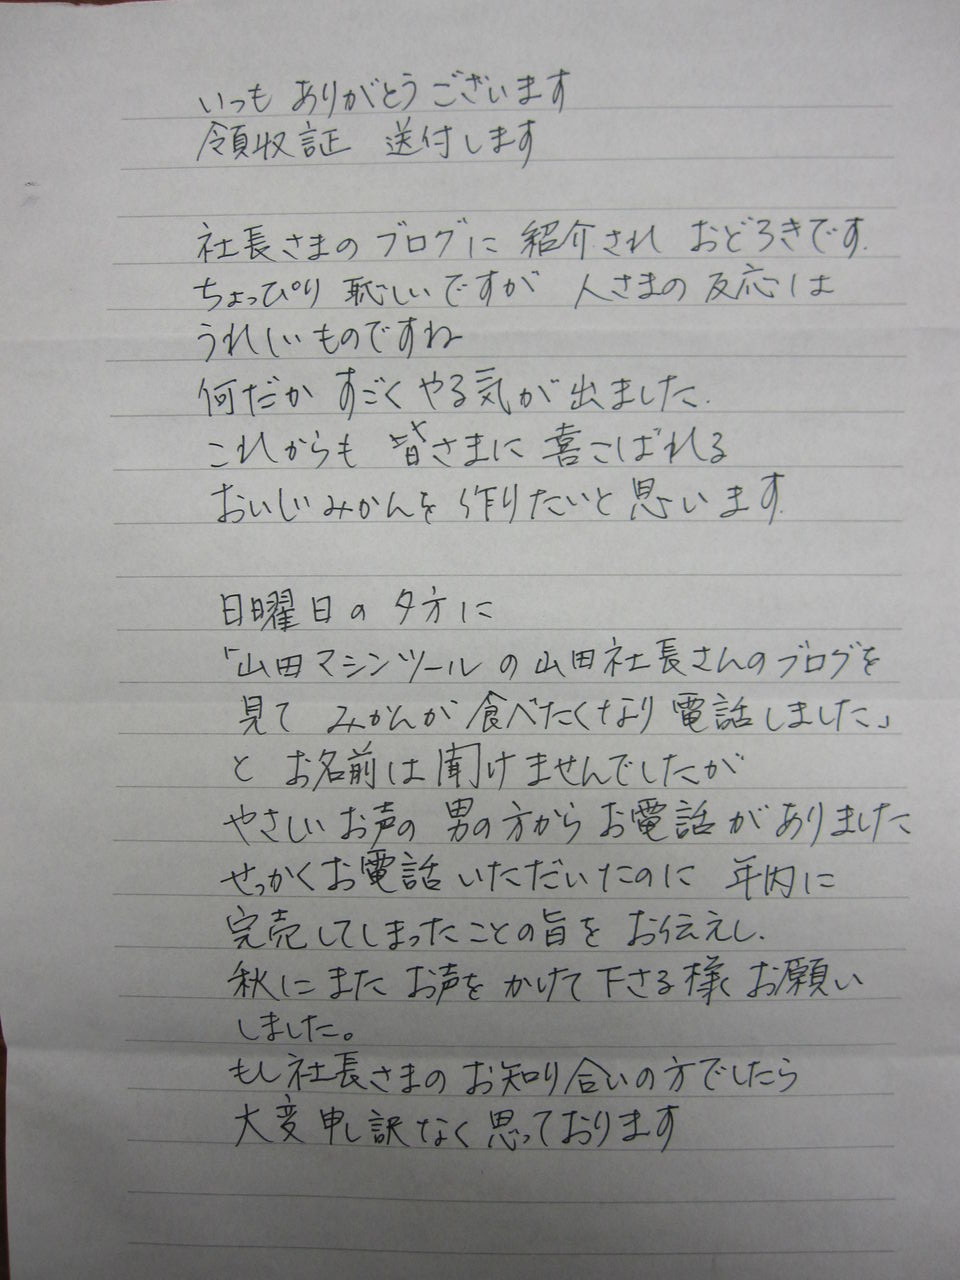 いつも ありがとうございます
領収証 送付します
社長さまのブログに 紹介され おどろきです.
ちょっぴり 恥しいですが 人さまの 反応は
うれしいものですね
何だか すごくやる気が出ました.
これからも 皆さまに 喜こばれる
おいしいみかんを 作りたいと思います.
日曜日の夕方に
「山田マシンツールの山田社長さんのブログを
見て みかんが食べたくなり電話しました」
と お名前は聞けませんでしたが
やさしいお声の 男の方からお電話がありました
せっかくお電話いただいたのに 年内に
完売してしまったことの旨を お伝えし.
秋にまた お声を かけて下さる様 お願い
しました。
もし社長さまのお知り合いの方でしたら
大変申し訳なく思っております